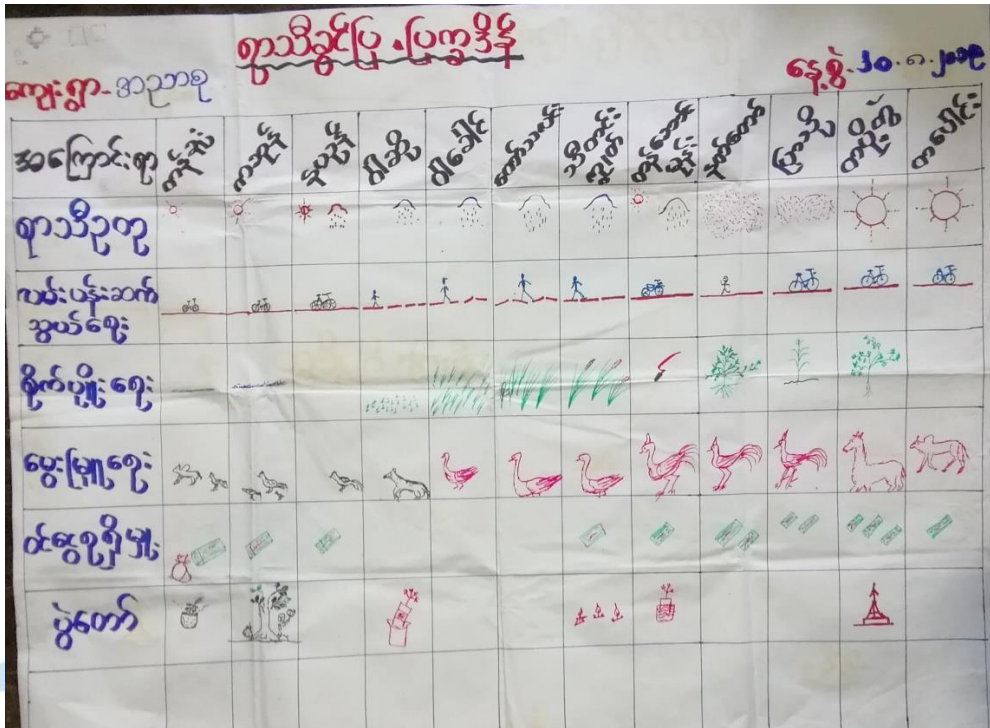 ရာသီခွင်ပြ ပြက္ခဒိန်
ကျေးရွာ - အညာစု
နေ့စွဲ - ၁၀.၈.၂၀၁၉
အကြောင်းရာ တန်ခူး ကဆုန် နယုန် ဝါဆို ဝါခေါင် တော်သလင်း သီတင်းကျွတ် တန်ဆောင်မုန်း နတ်တော် ပြာသို တပို့တွဲ တပေါင်း
ရာသီဥတု
လမ်းပန်းဆက်
သွယ်ရေး
စိုက်ပျိုးရေး
မွေးမြူရေး
ဝင်ငွေရရှိမှု
ပွဲတော်